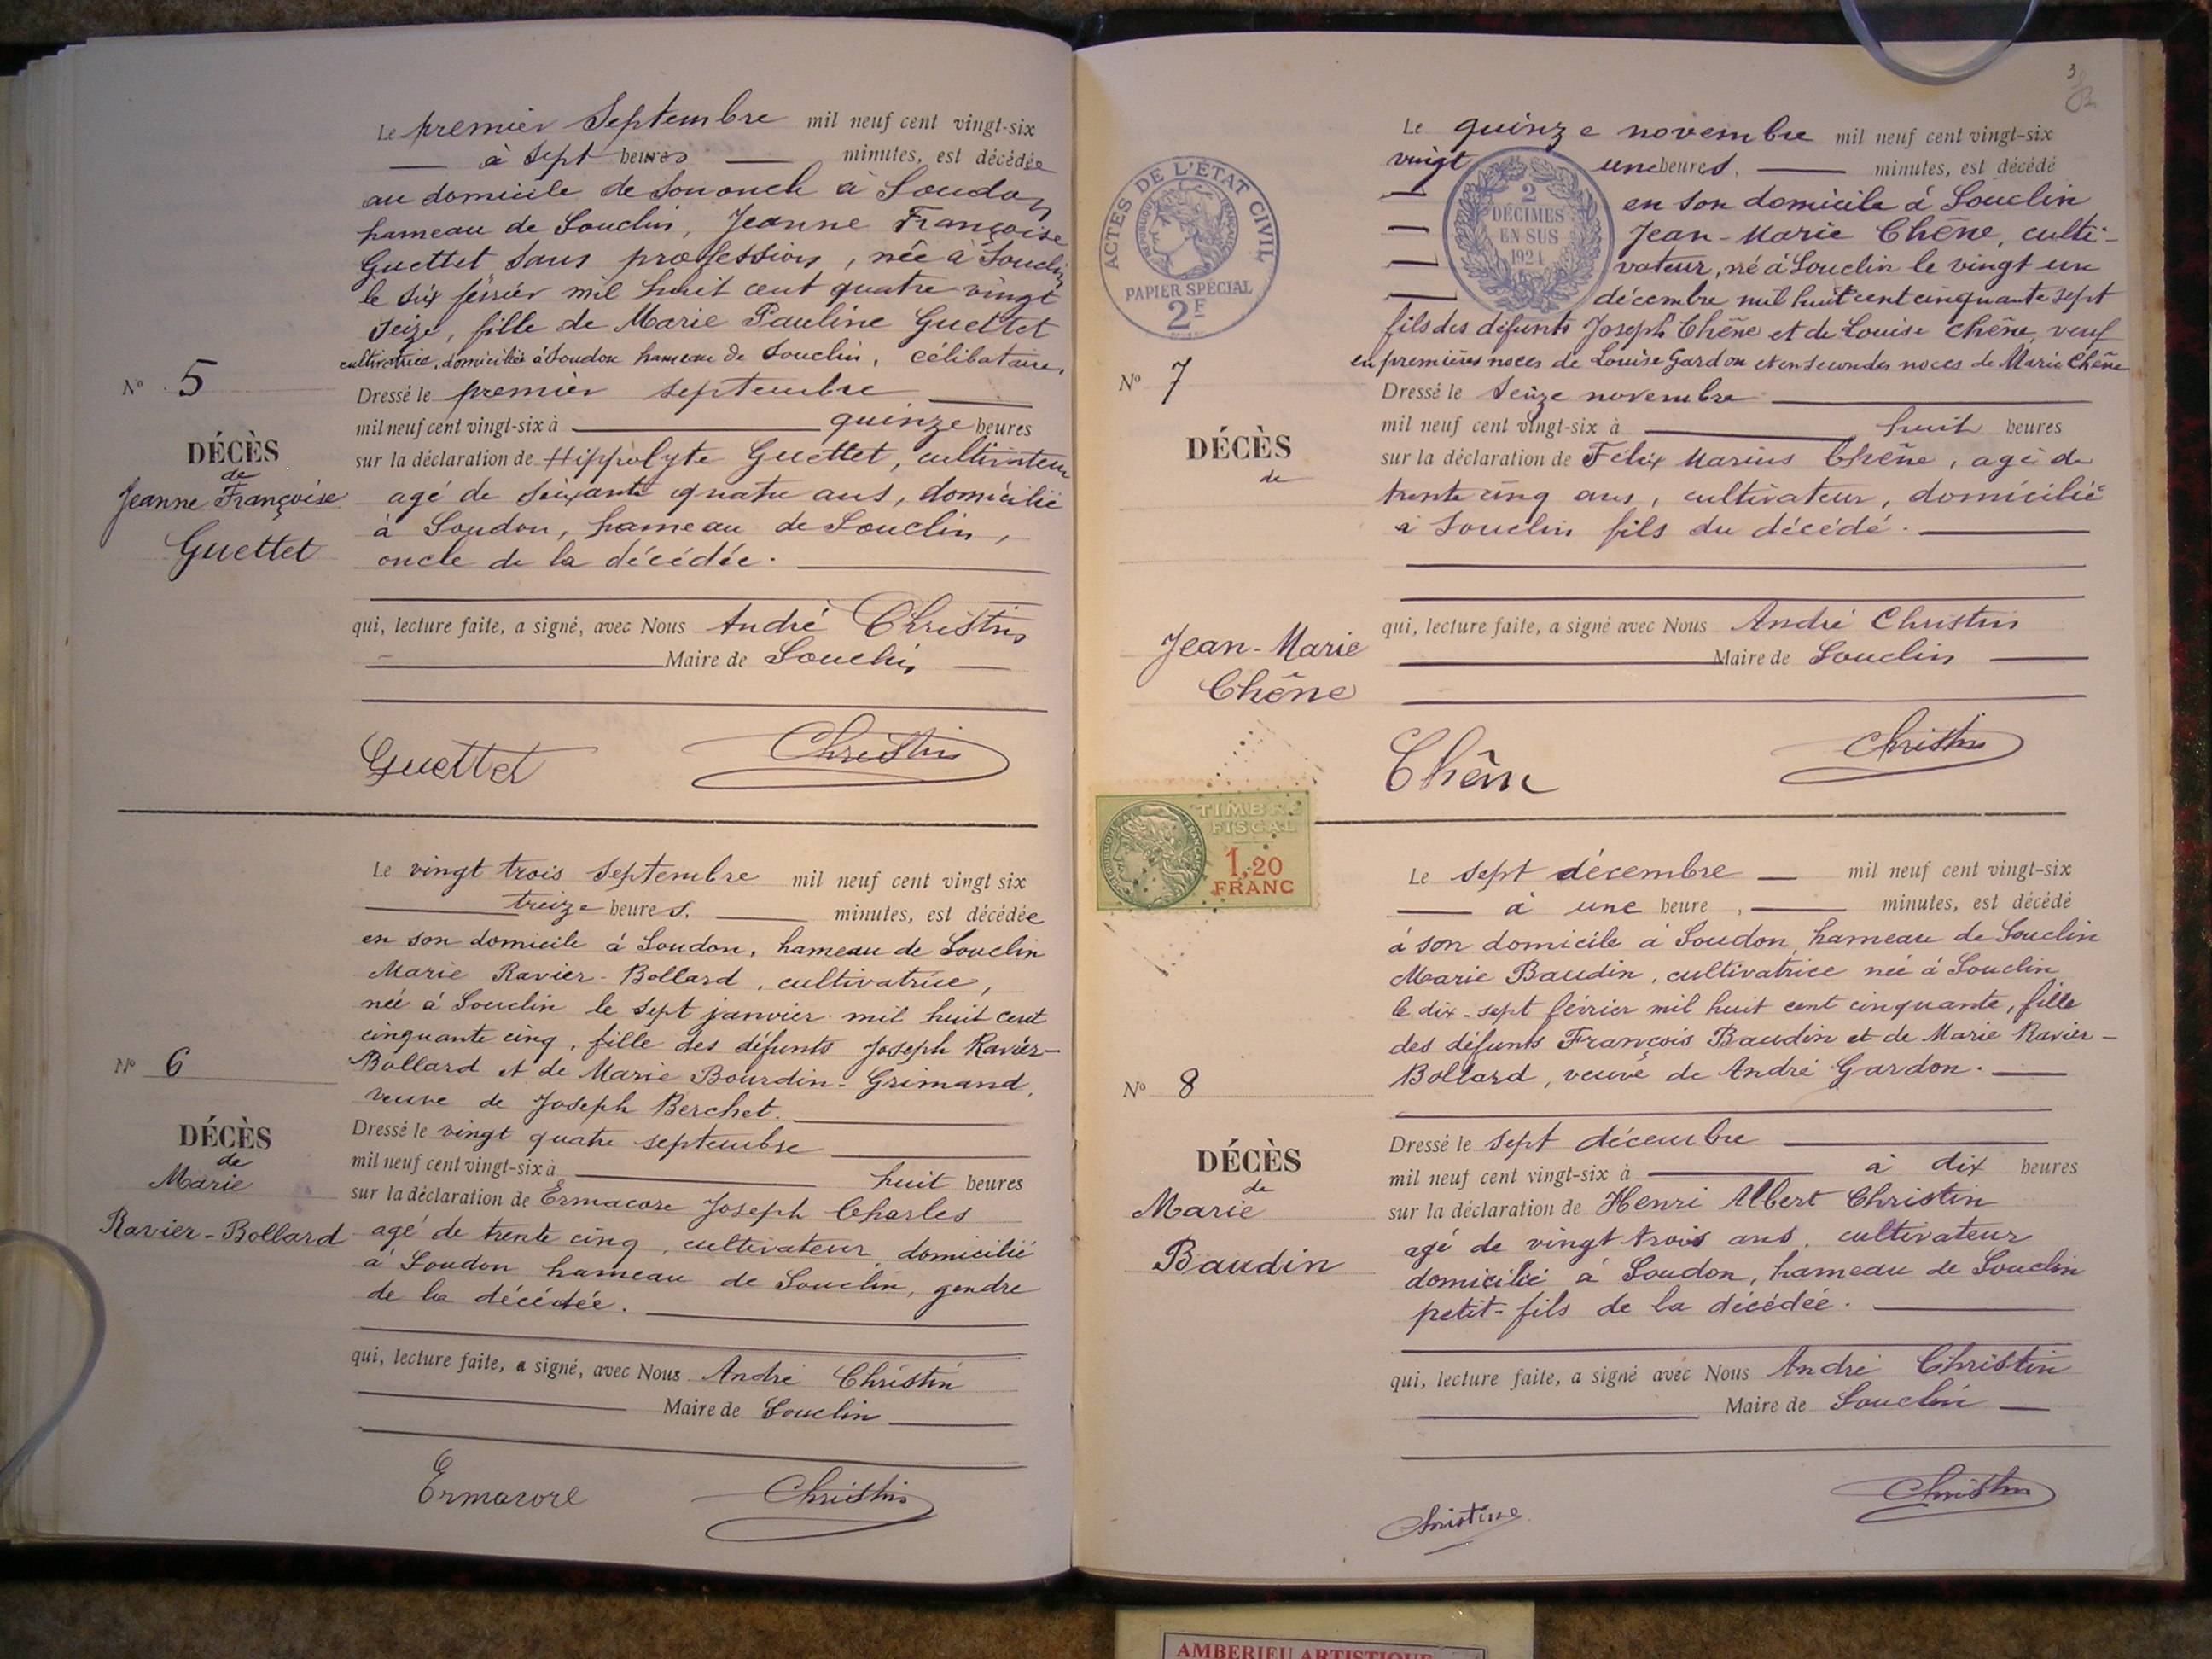 Le premier Septembre mil neuf cent vingt-six
à sept heures minutes, est décédée
au domicile de son oncle à Soudon
hameau de Souclin, Jeanne Françoise
Guettet sans profession, née à Souclin
le six février mil huit cent quatre vingt
seize, fille de Marie Pauline Guettet
cultivatrice, domiciliée à Soudon hameau de Souclin, célibataire.
N° 5
Dressé le premier septembre
mil neuf cent vingt-six à quinze heures
DÉCÈS
sur la déclaration de Hippolyte Guettet, cultivateur
de
Jeanne Françoise
agé de soixante quatre ans, domicilié
à Soudon, hameau de Souclin,
Guettet
oncle de la décédée.
qui, lecture faite, a signé, avec Nous André Christin
Maire de Souclin
Guettet Christin
Le vingt trois Septembre mil neuf cent vingt six
treize heures. minutes, est décédée
en son domicile à Soudon, hameau de Souclin
Marie Ravier-Bollard, cultivatrice,
née à Souclin le sept janvier mil huit cent
cinquante cinq, fille des défunts Joseph Ravier-
N° 6
Bollard et de Marie Bourdin-Grimand,
veuve de Joseph Berchet.
DÉCÈS
Dressé le vingt quatre septembre
de
mil neuf cent vingt-six à huit heures
Marie
sur la déclaration de Ermacore Joseph Charles
Ravier-Bollard
agé de trente cinq, cultivateur, domicilié
à Soudon hameau de Souclin, gendre
de la décédée.
qui, lecture faite, a signé, avec Nous André Christin
Maire de Souclin
Ermacore Christin
3
ACTES DE L'ÉTAT CIVIL
RÉPUBLIQUE FRANÇAISE
PAPIER SPÉCIAL
2F
2
DÉCIMES
EN SUS
1924
Le quinze novembre mil neuf cent vingt-six
vingt une heures. minutes, est décédé
en son domicile à Souclin
Jean-Marie Chêne, culti-
vateur, né à Souclin le vingt un
décembre mil huit cent cinquante sept
fils des défunts Joseph Chêne et de Louise Chêne, veuf
en premières noces de Louise Gardon et en secondes noces de Marie Chêne
N° 7
Dressé le seize novembre
mil neuf cent vingt-six à huit heures
DÉCÈS
sur la déclaration de Félix Marius Chêne, agé de
de
trente cinq ans, cultivateur, domicilié
à Souclin fils du décédé.
qui, lecture faite, a signé avec Nous André Christin
Jean-Marie
Maire de Souclin
Chêne
Chêne Christin
TIMBRE
FISCAL
1,20
FRANC
Le sept décembre mil neuf cent vingt-six
à une heure, minutes, est décédé
à son domicile à Soudon, hameau de Souclin
Marie Baudin, cultivatrice née à Souclin
le dix-sept février mil huit cent cinquante, fille
des défunts François Baudin et de Marie Ravier-
N° 8
Bollard, veuve de André Gardon.
DÉCÈS
Dressé le sept décembre
mil neuf cent vingt-six à à dix heures
de
Marie
sur la déclaration de Henri Albert Christin
agé de vingt trois ans, cultivateur
Baudin
domicilié à Soudon, hameau de Souclin
petit-fils de la décédée.
qui, lecture faite, a signé avec Nous André Christin
Maire de Souclin
Christin
AMBERIEU ARTISTIQUE